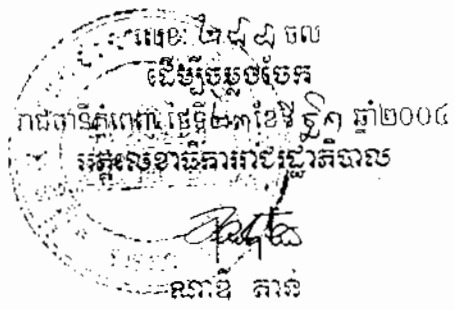 លេខ: ២៨៨ ចល
ដើម្បីចម្លងចែក
រាជធានីភ្នំពេញ ថ្ងៃទី២៣ខែមិថុនា ឆ្នាំ២០០៤
អគ្គលេខាធិការរាជរដ្ឋាភិបាល
ណាឌី តាន់